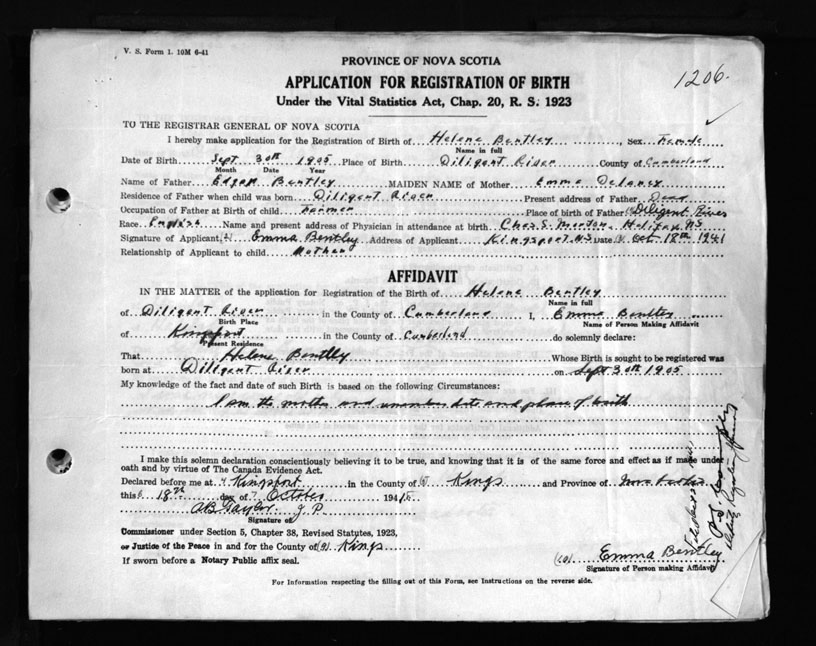 V. S. Form 1. 10M 6-41
PROVINCE OF NOVA SCOTIA
1206.
APPLICATION FOR REGISTRATION OF BIRTH
Under the Vital Statistics Act, Chap. 20, R. S. 1923
TO THE REGISTRAR GENERAL OF NOVA SCOTIA
I hereby make application for the Registration of Birth of Helene Bentley, Sex Female
Name in full
Date of Birth Sept 30th 1905 Place of Birth Diligent River County of Cumberland
Month Date Year
Name of Father Edgar Bentley MAIDEN NAME of Mother Emma Delaney
Residence of Father when child was born Diligent River Present address of Father Dead
Occupation of Father at Birth of child Farmer Place of birth of Father Diligent River
Race English Name and present address of Physician in attendance at birth Chas. S. Halifax NS
Signature of Applicant Emma Bentley Address of Applicant Kingsport N.S Date Oct 18th 1941
Relationship of Applicant to child Mother
AFFIDAVIT
IN THE MATTER of the application for Registration of the Birth of Helene Bentley
Name in full
of Diligent River in the County of Cumberland I, Emma Bentley
Birth Place Name of Person Making Affidavit
of Kingsport in the County of Cumberland do solemnly declare:
Present Residence
That Helene Bentley Whose Birth is sought to be registered was
born at Diligent River on Sept 30th 1905
My knowledge of the fact and date of such Birth is based on the following Circumstances:
I am the mother and remember date and place of birth
I make this solemn declaration conscientiously believing it to be true, and knowing that it is of the same force and effect as if made under
oath and by virtue of The Canada Evidence Act.
Declared before me at Kingsport in the County of Kings and Province of Nova Scotia
this 18th day of October 1941
AB Taylor J P
Signature of
Commissioner under Section 5, Chapter 38, Revised Statutes, 1923,
or Justice of the Peace in and for the County of (9) Kings
If sworn before a Notary Public affix seal.
(10) Emma Bentley
Signature of Person making Affidavit
For Information respecting the filling out of this Form, see Instructions on the reverse side.